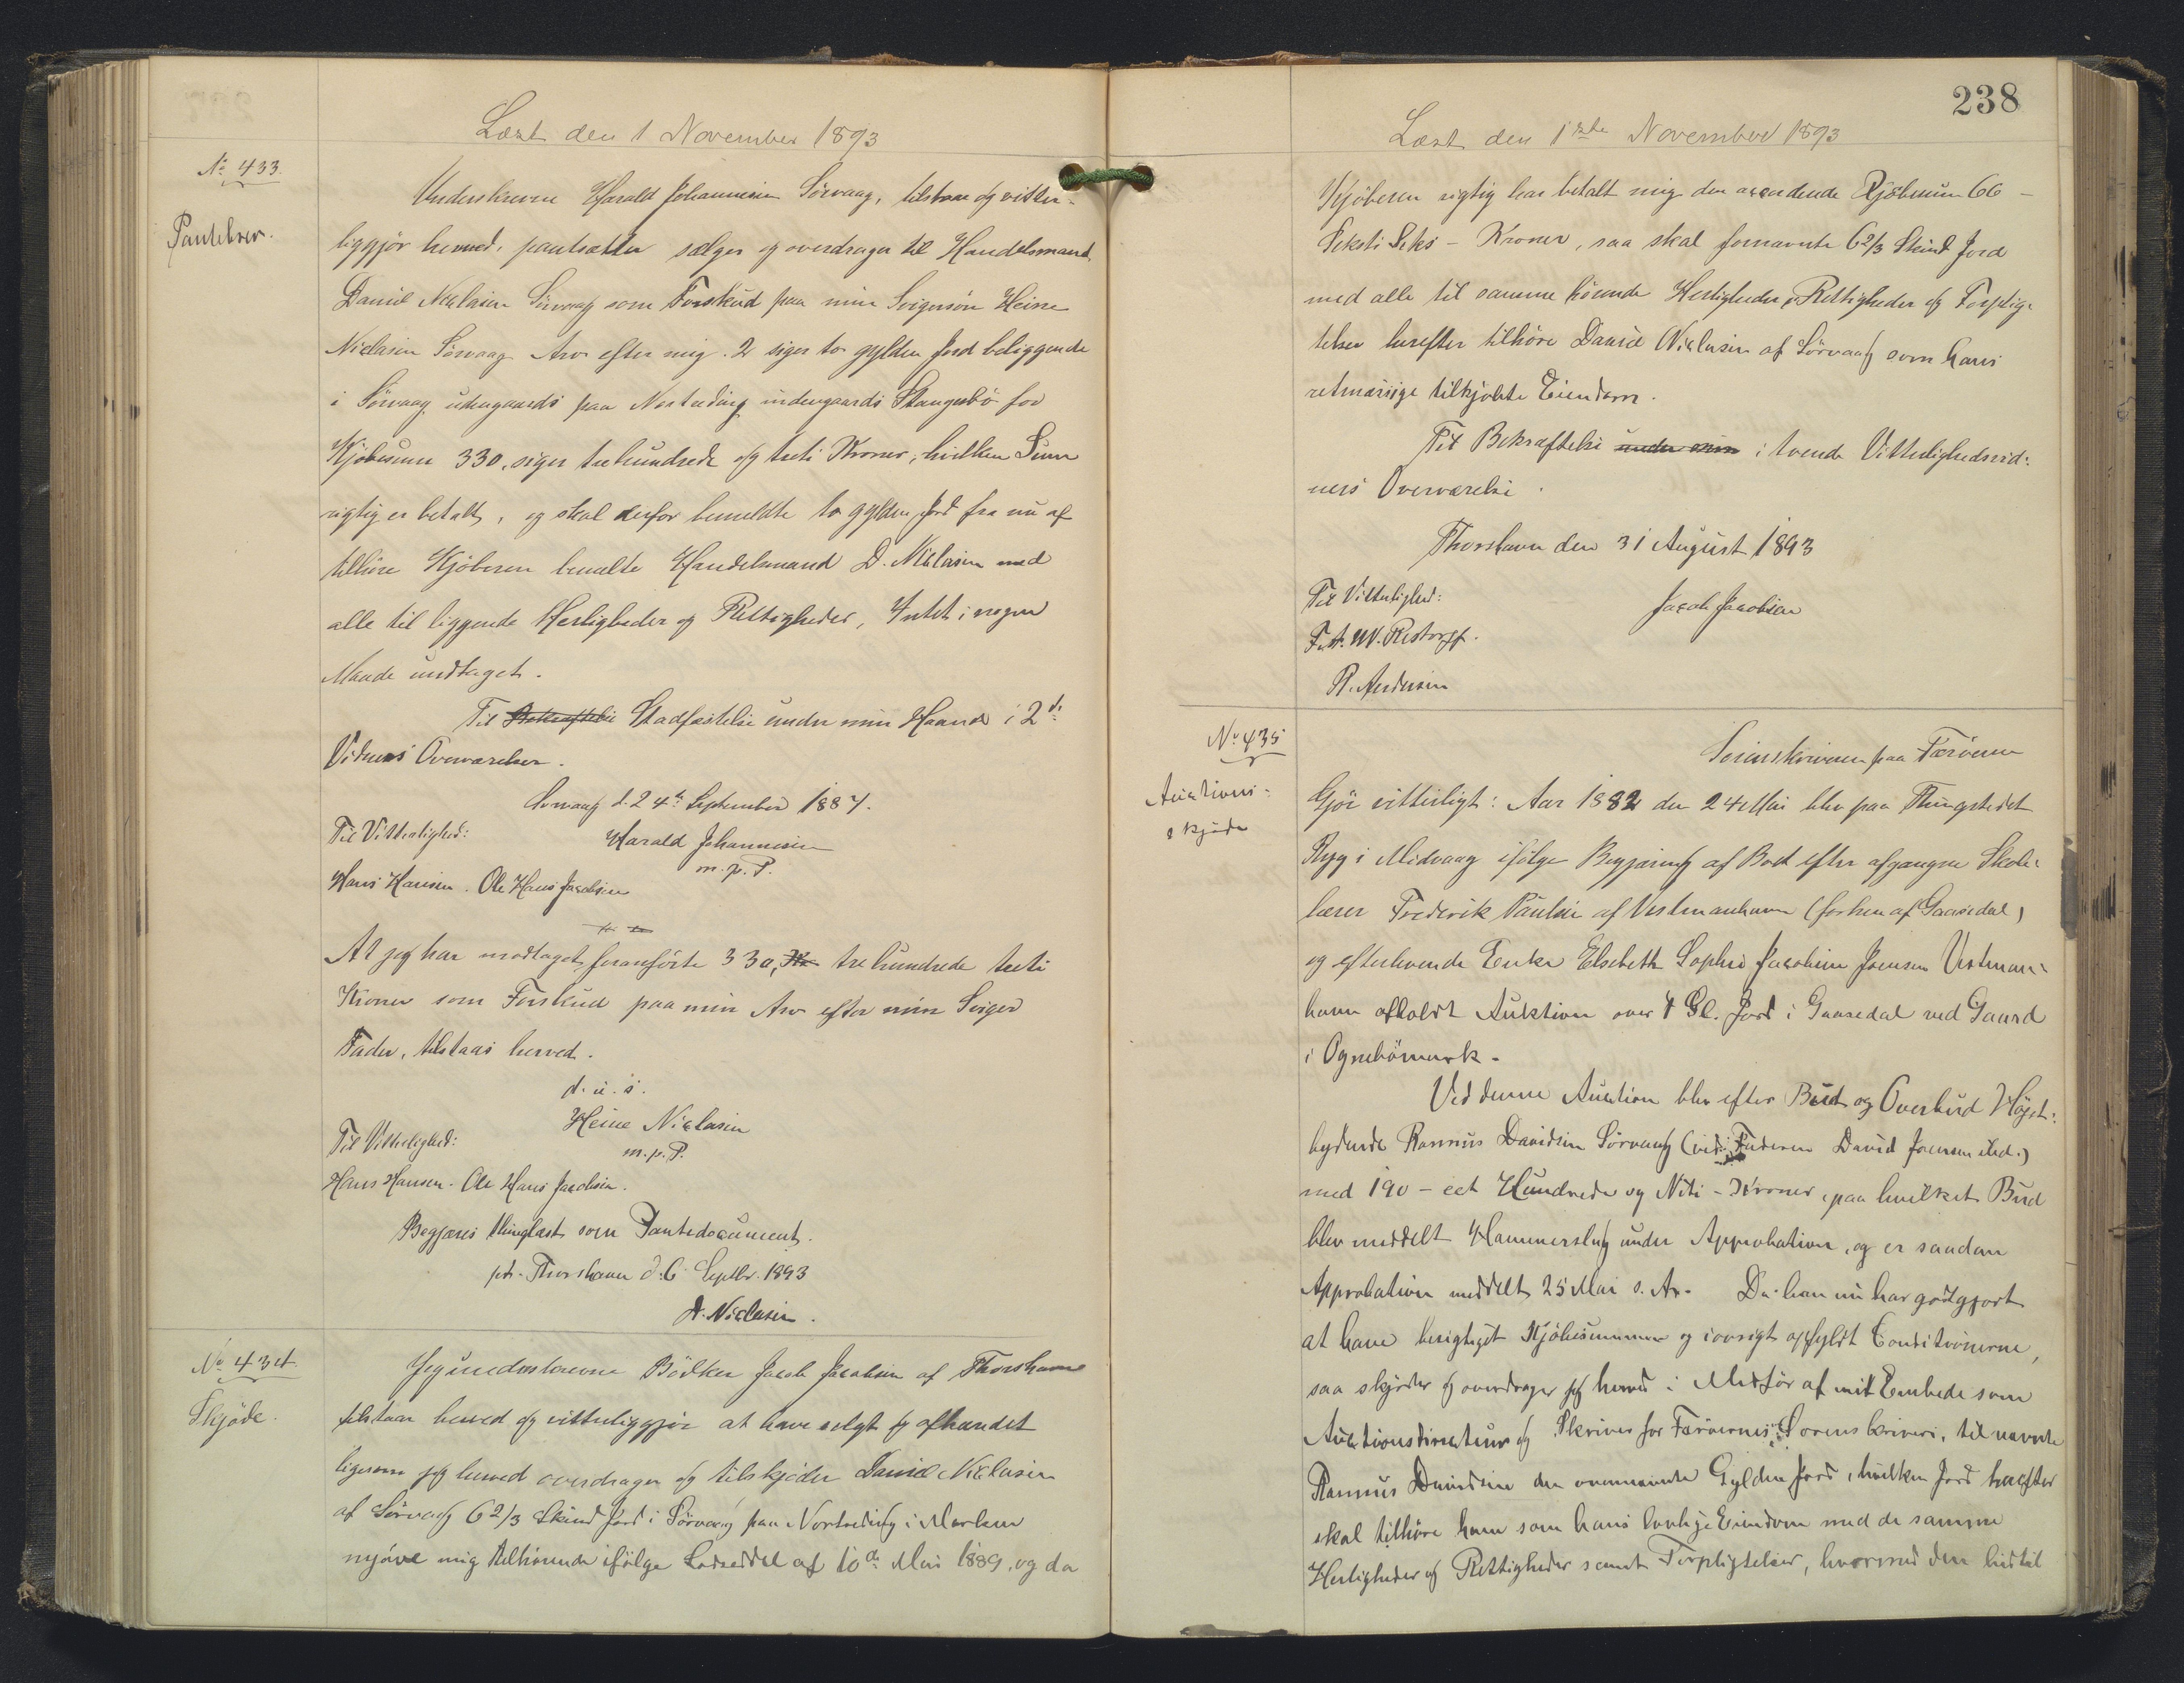 Læst den 1 November 1893
No 433.
Pantebrev.
Underskrevne Harald Johannesen Sörvaag, tilstaar og vitter-
liggjör herved, pantsætter sælger og overdrager til Handelsmand
Daniel Niclasen Sörvaag som Forskud paa min Svigersön Heine
Niclasen Sörvaag Arv efter mig. 2 siger to gylden Jord beliggende
i Sörvaag udengaards paa indengaards for
Kjöbesum 330, siger trehundrede og treti Kroner, hvilken Sum
rigtig er betalt, og skal derfor bemeldte to gylden Jord fra nu af
tilhöre Kjöberen benævnte Handelsmand D. Niclasen med
alle til liggende Herligheder og Rettigheder, Intet i nogen
Maade undtaget.
Til Bekræftelse Stadfæstelse under min Haand i 2de
Vidners Overværelse.
Sorvaag d. 24de September 1887.
Til Vitterlighed: Harald Johannesen
m. p. P.
Hans Hansen. Ole Hans Jacobsen
At jeg har modtaget foranförte 330, Kr trehundrede treti
Kroner som Forskud paa min Arv efter min Sviger
Fader, tilstaas herved.
d. u. s.
Heine Niclasen
Til Vitterlighed: m. p. P.
Hans Hansen. Ole Hans Jacobsen.
Begjæres thinglæst som Pantedocument.
pt. Thorshavn d. 6 Septbr. 1893
D. Niclasen.
No 434.
Skjöde.
Jeg underskrevne Bödker Jacob Jacobsen af Thorshavn
tilstaar herved og vitterliggjör at have solgt og afhændet
ligesom jeg herved overdrager og tilskjöder Daniel Niclasen
af Sörvaag 6 2/3 Skind Jord i Sörvaag paa i Marken
mig tilhörende ifölge Lodseddel af 10de Mai 1889, og da
238
Læst den 1ste November 1893
Kjöberen rigtig har betalt mig den accorderede Kjöbesum 66 -
Seksti Seks - Kroner, saa skal fornævnte 6 2/3 Skind Jord
med alle til samme hörende Herligheder, Rettigheder og Forplig-
telser herefter tilhöre Daniel Niclasen af Sörvaag som hans
retmæssige tilkjöbte Eiendom.
Til Bekræftelse under min i tvende Vitterlighedsvid-
ners Overværelse.
Thorshavn den 31 August 1893
Til Vitterlighed: Jacob Jacobsen
Restorff.
R. Andersen
No 435
Auctions-
skjöde
Sorenskriveren paa Færöerne
Gjör vitterligt: Aar 1882 den 24 Mai blev paa Thingstedet
Ryg i Midvaag ifölge Begjæring af Boet efter afgangne Skole-
lærer Frederik Paulsen af Vestmanhavn (forhen af Gaasedal)
og efterlevende Enke Elsebeth Sophie Jacobine Joensen Vestman-
havn afholdt Auktion over 1 Gl. Jord i Gaasedal ved Gaard
i Ognebömark.
Ved denne Auction blev efter Bud og Overbud Höjst-
bydende Rasmus Davidsen Sörvaag (ved Faderen David Joensen ibd.)
med 190 - eet Hundrede og Niti - Kroner, paa hvilket Bud
blev meddelt Hammerslag under Approbation, og er saadan
Approbation meddelt 25 Mai s. A. Da han nu har godtgjort
at have berigtiget Kjöbesummen og iövrigt opfyldt Conditionerne,
saa skjöder og overdrager jeg herved i Medför af mit Embede som
Auctionsdirecteur og Skriver for Færöernes Sorenskriveri, til nævnte
Rasmus Davidsen den ovennævnte Gylden Jord, hvilken Jord herefter
skal tilhöre ham som hans lovlige Eiendom med de samme
Herligheder og Rettigheder samt Forpligtelser, hvormed den hidtil